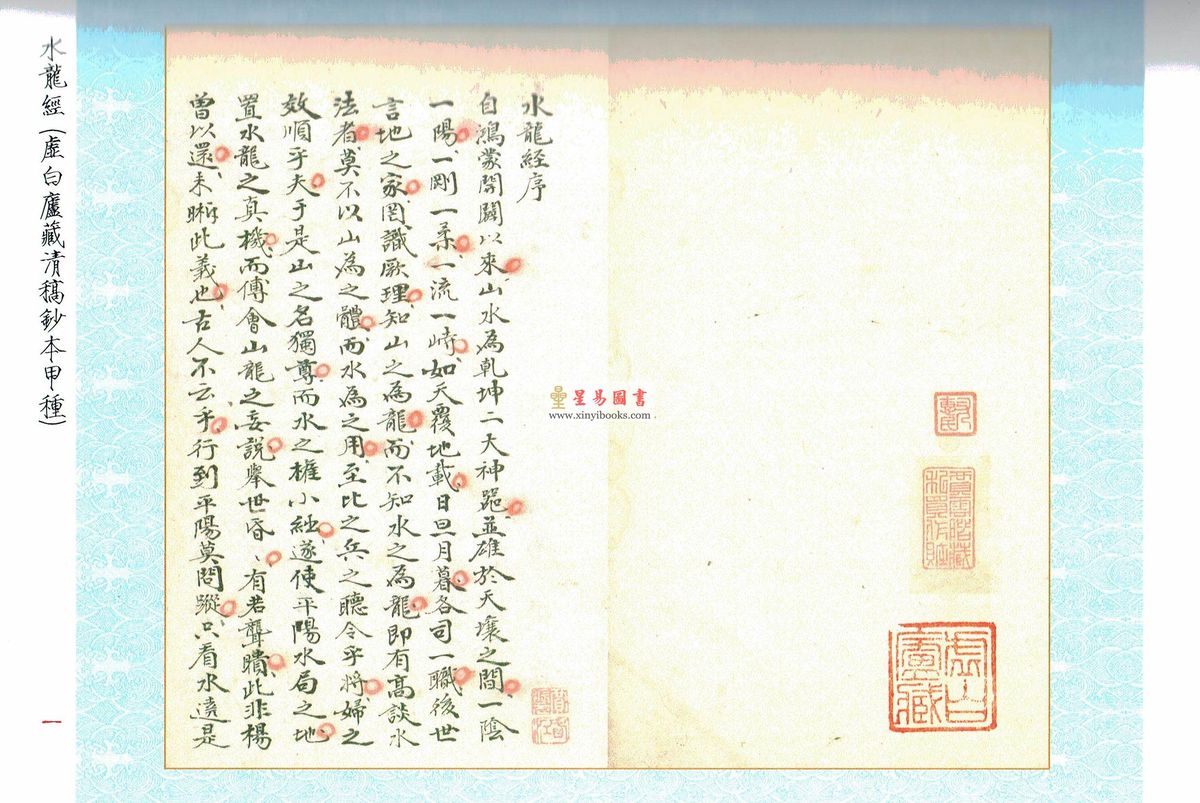 虛白廬藏
水龍経序
自鴻蒙開闢以來山水為乾坤二大神噐並雄於天壤之間一陰
一陽一剛一柔一流一峙如天覆地載日旦月暮各司一職後世
言地之家罔識厥理知山之為龍而不知水之為龍即有高談水
法者莫不以山為之體而水為之用至比之兵之聽令乎將婦之
效順乎夫于是山之名獨尊而水之權小絀遂使平陽水局之地
置水龍之真機而傅會山龍之妄說舉世昏〻有若聾瞶此非楊
曾以還未晰此義也古人不云乎行到平陽莫問蹤只看水遶是
星易圖書
www.xinyibooks.com
水龍經(虛白廬藏清稿鈔本甲種)
一